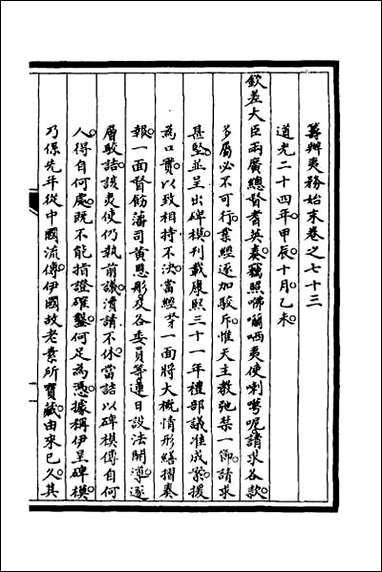 籌辦夷務始末卷之七十三
道光二十四年甲辰十月乙未
欽差大臣兩廣總督耆英奏竊照咈囒哂夷使喇蕚呢請求各款
多屬必不可行業經逐加駮斥惟天主教弛禁一節請求
甚堅並呈出碑模刊載康熙三十一年禮部議准成案援
為口實以致相持不決當經奴才一面將大概情形繕摺奏
報一面督飭藩司黃恩彤及各委員等連日設法開導逐
層駮詰該夷使仍執前議瀆請不休當詰以碑模傳自何
人得自何處既不能指證確鑿何足為憑據稱伊呈碑模
乃係先年從中國流傳伊國故老素所寶藏由來已久其